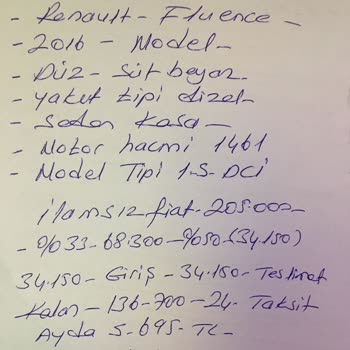 - Renault - Fluence -
- 2016 - Model -
- Düz - Süt beyaz -
- yakıt tipi dizel -
- Sedan Kasa -
- Motor hacmi 1461
- Model Tipi 1.5 - DCİ
ilansız fiat - 205.000 -
- %33 - 68.300 - %50 - (34.150)
34.150 - Giriş - 34.150 - Teslimat
Kalan - 136-700 - 24. Taksit
Ayda 5-695 - TL -